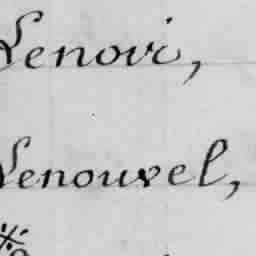 Lenovi,
Lenouvel,